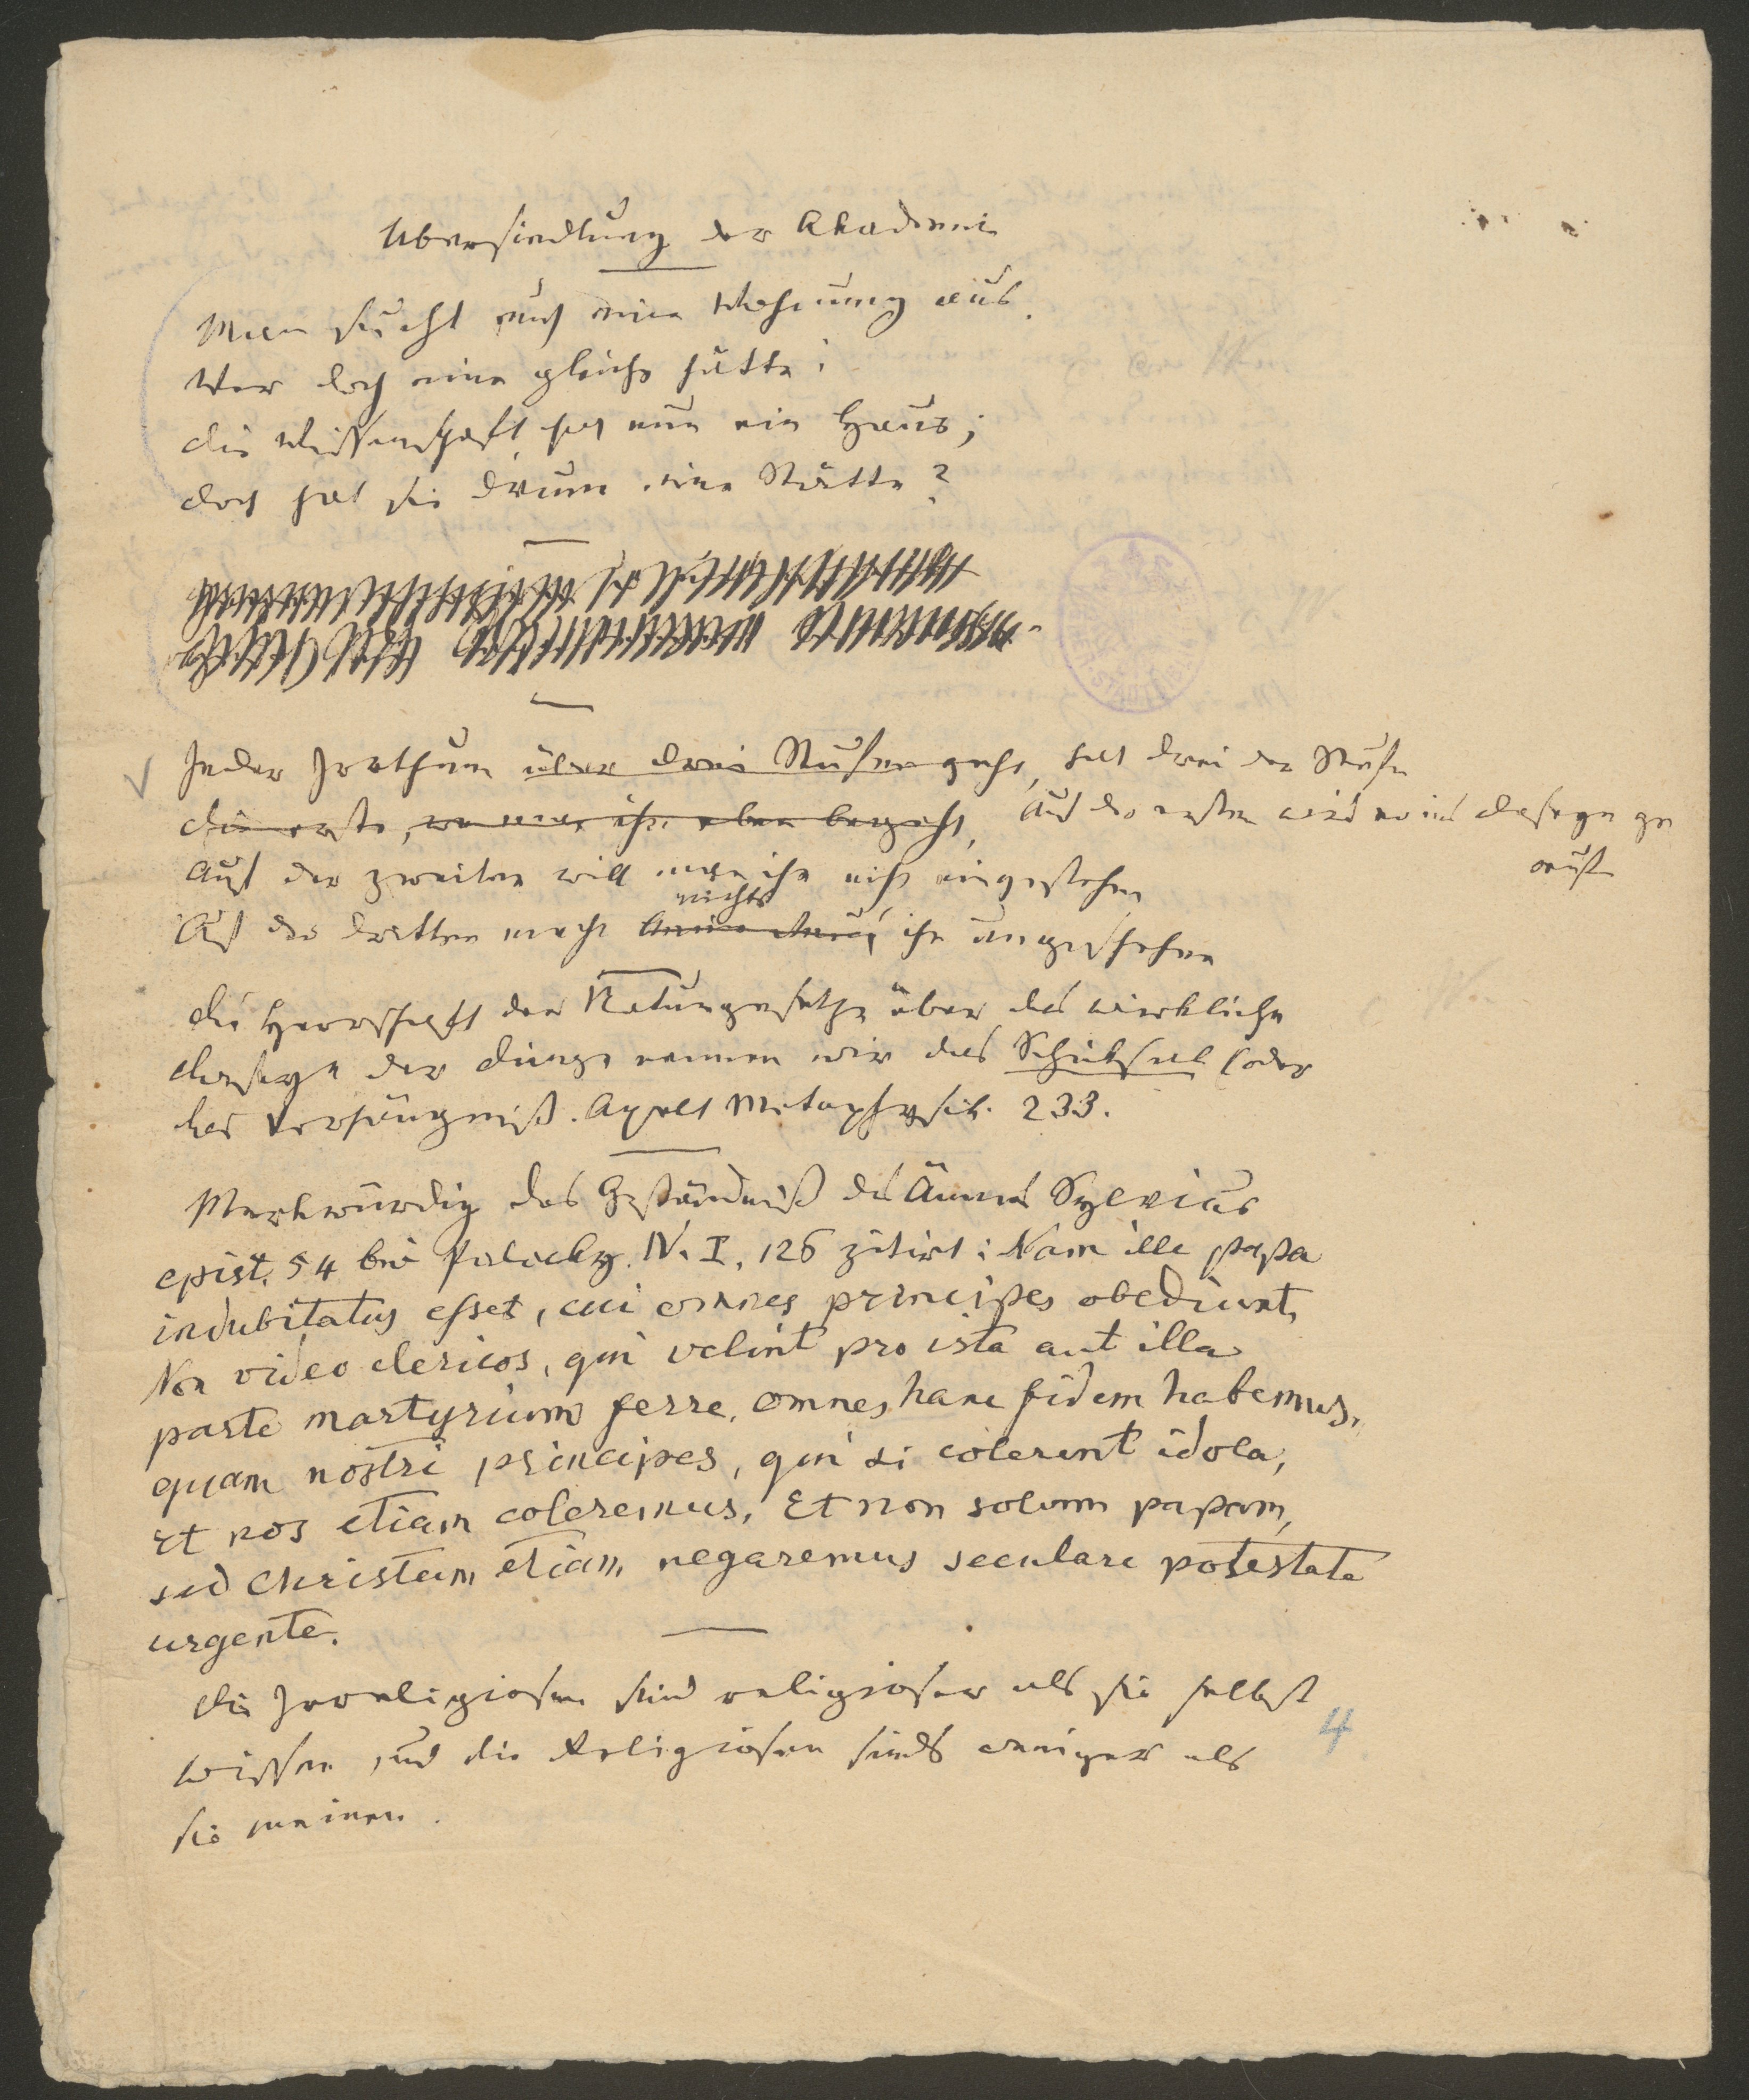 Übersiedlung der Akademie
Man sucht auch eine Wohnung aus.
Wer doch eine gleich hätte!
die Wissenschaft hat nun ein Haus;
doch hat sie drum eine Stätte?
Jeder Irrthum über drei Stufen geht, hat drei der Stufen
die erste, wo man ihn eben begeht, Auf der ersten wird er ins Daseyn ge
ruft
Auf der zweiten will man ihn nicht eingestehen
Auf der dritten macht nichts ihn ungeschehen
die Herrschaft der Naturgesetze über das wirkliche
Daseyn der Dinge nennen wir das Schicksal (oder
das Verhängniß. Apelt Metaphysik. 233.
Merkwürdig das Geständniß des Äneas Sylvius
epist. 54 bei Palacky. IV. I. 126 zitirt: Nam ille papa
indubitatus esset, cui omnes principes obedirent.
Non video clericos, qui velint pro ista aut illa
parte martyrium ferre. omnes hanc fidem habemus,
quam nostri principes, qui si colerent idola,
et nos etiam coleremus. Et non solum papam,
sed Christum etiam negaremus seculari potestate
urgente.
die Irreligiosen sind religioser als sie selbst
wissen, und die Religiosen sinds weniger als
sie meinen.
4